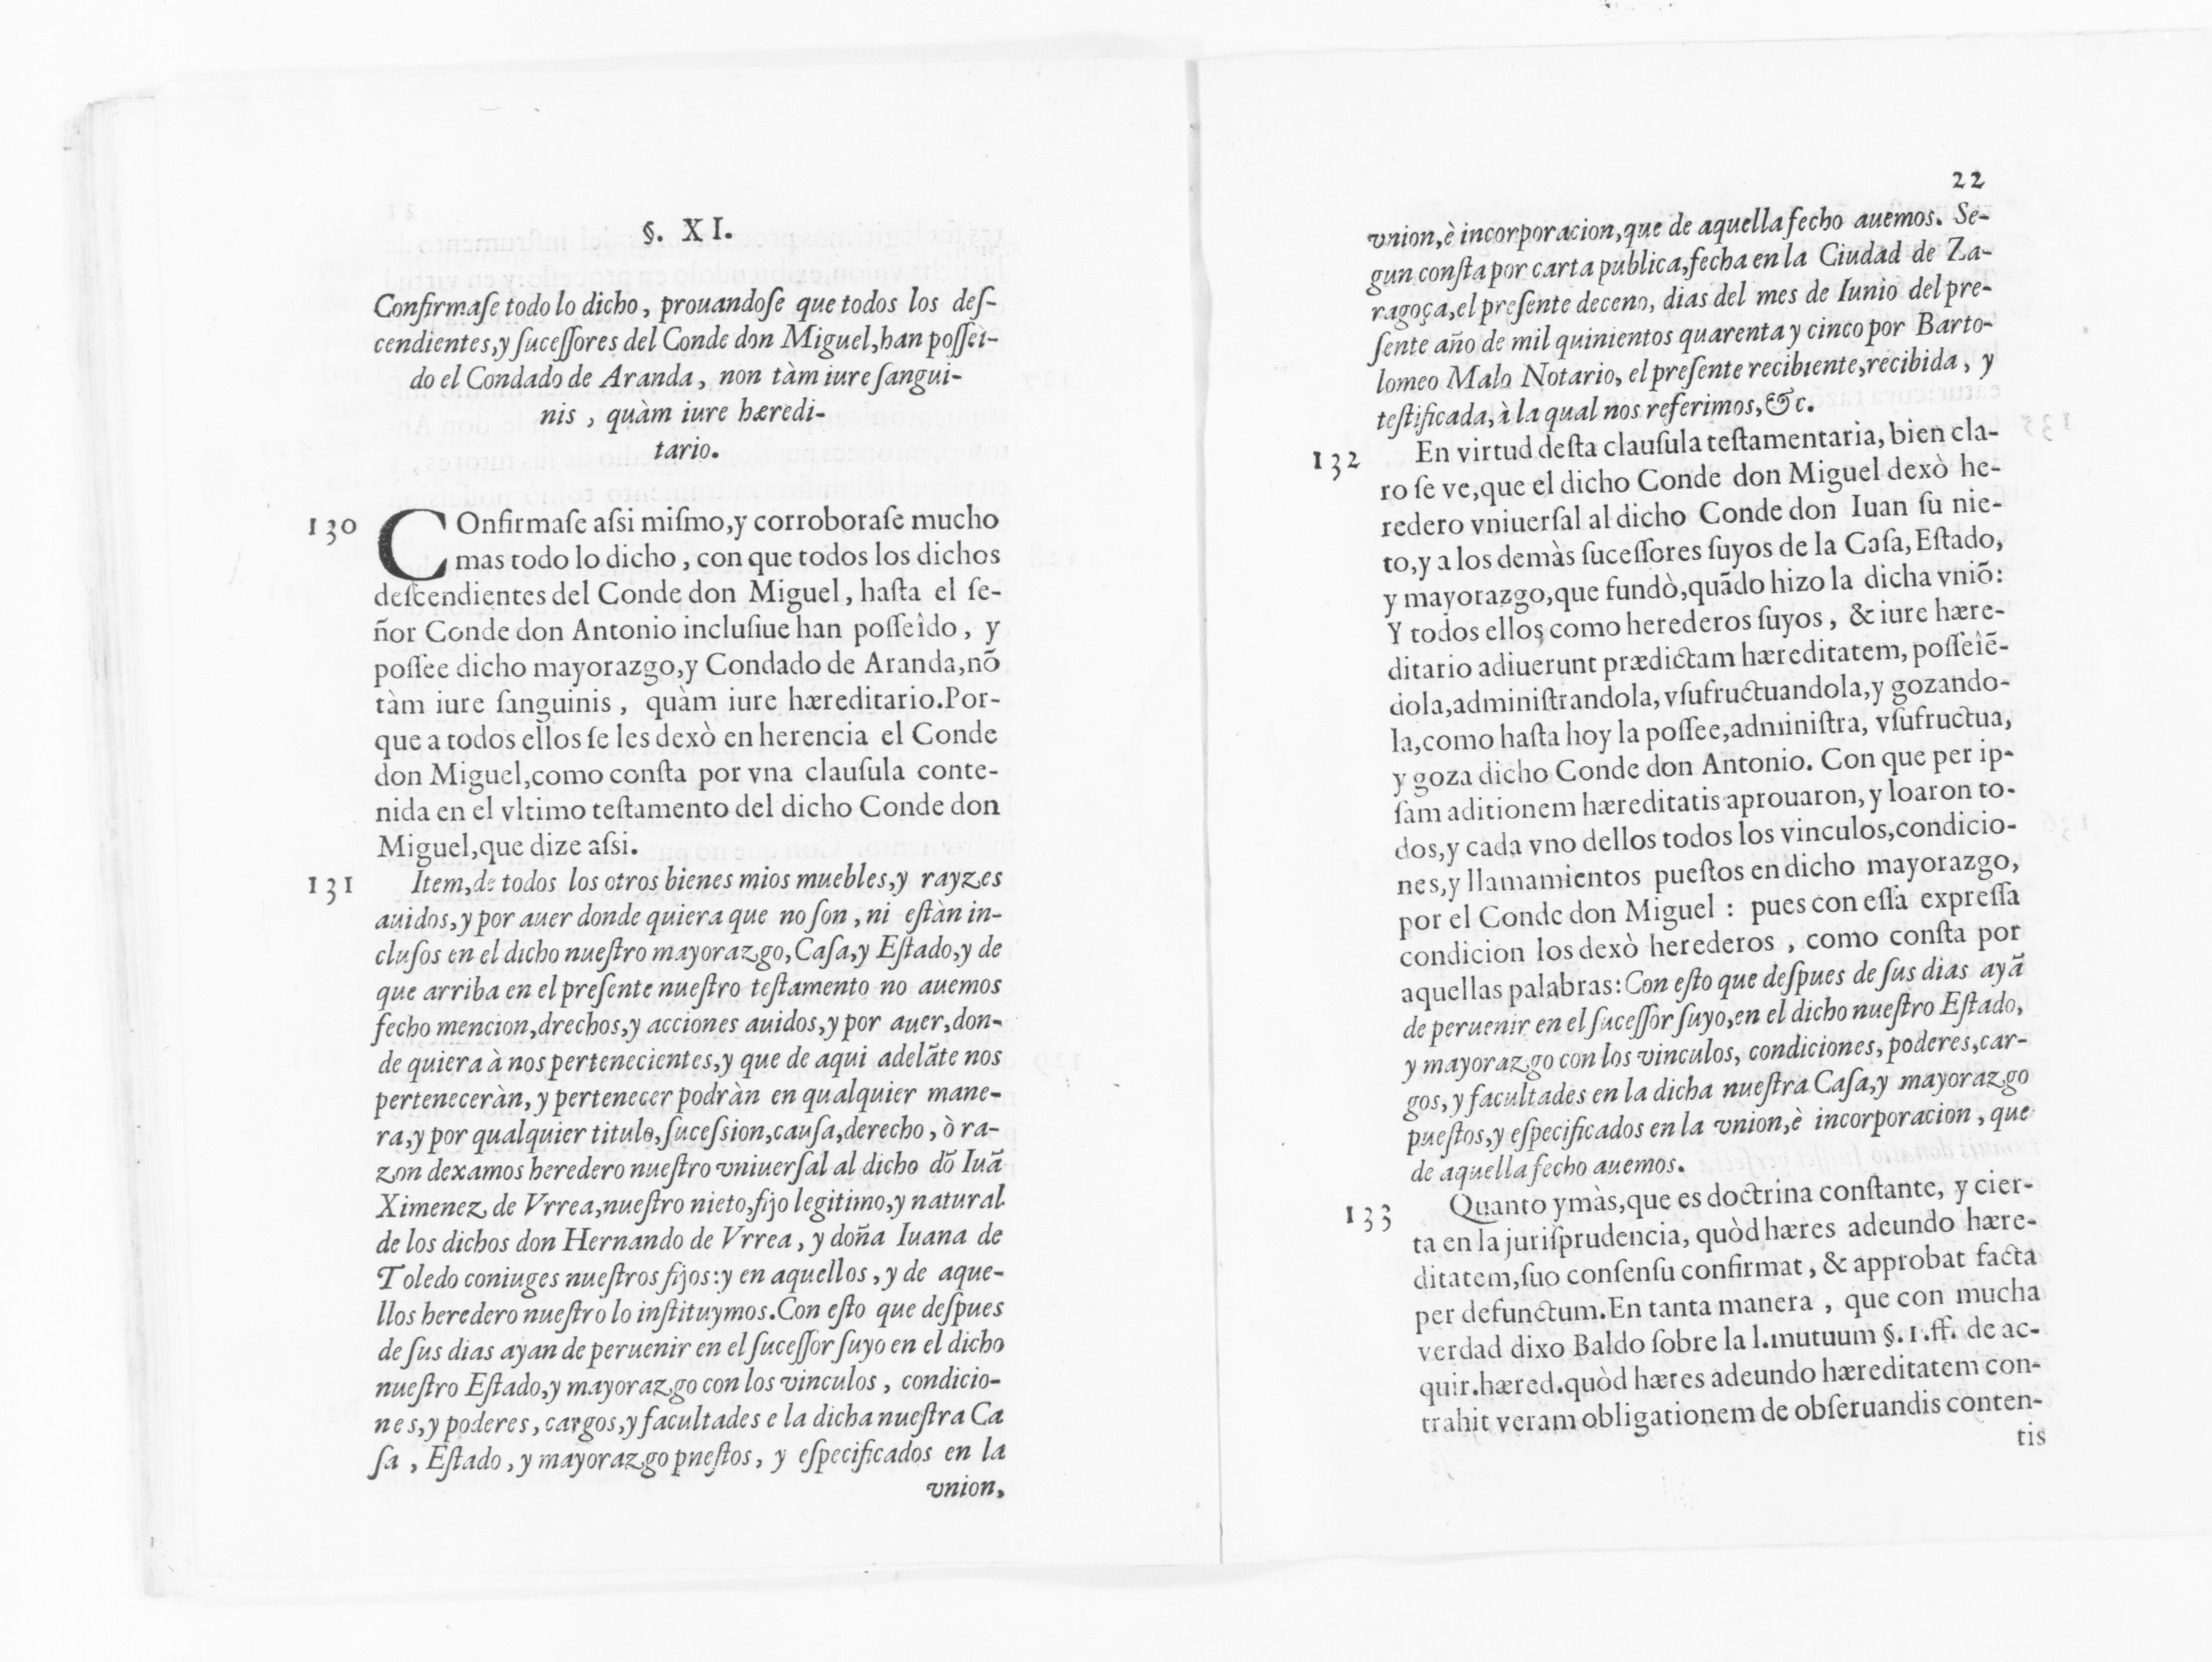 §. XI.
Confirmaſe todo lo dicho, prouandoſe que todos los deſ-
cendientes,y ſuceſſores del Conde don Miguel,han poſſeì-
do el Condado de Aranda, non tàm iure ſangui-
nis, quàm iure hæredi-
tario.
130 COnfirmaſe aſsi miſmo,y corroboraſe mucho
mas todo lo dicho, con que todos los dichos
deſcendientes del Conde don Miguel, haſta el ſe-
ñor Conde don Antonio incluſiue han poſſeìdo, y
poſſee dicho mayorazgo,y Condado de Aranda,nõ
tàm iure ſanguinis, quàm iure hæreditario.Por-
que a todos ellos ſe les dexò en herencia el Conde
don Miguel,como conſta por vna clauſula conte-
nida en el vltimo teſtamento del dicho Conde don
Miguel,que dize aſsi.
131 Item,de todos los otros bienes mios muebles,y rayzes
auidos,y por auer donde quiera que no ſon, ni eſtàn in-
cluſos en el dicho nueſtro mayorazgo,Caſa,y Eſtado,y de
que arriba en el preſente nueſtro teſtamento no auemos
fecho mencion,drechos,y acciones auidos,y por auer,don-
de quiera à nos pertenecientes,y que de aqui adelãte nos
perteneceràn, y pertenecer podràn en qualquier mane-
ra,y por qualquier titulo,ſuceſsion,cauſa,derecho, ò ra-
zon dexamos heredero nueſtro vniuerſal al dicho dõ Iuã
Ximenez de Vrrea,nueſtro nieto,fijo legitimo,y natural
de los dichos don Hernando de Vrrea, y doña Iuana de
Toledo coniuges nueſtros fijos:y en aquellos, y de aque-
llos heredero nueſtro lo inſtituymos.Con eſto que deſpues
de ſus dias ayan de peruenir en el ſuceſſor ſuyo en el dicho
nueſtro Eſtado,y mayorazgo con los vinculos, condicio-
nes,y poderes, cargos,y facultades e la dicha nueſtra Ca
ſa, Eſtado, y mayorazgo pneſtos, y eſpecificados en la
vnion,
22
vnion,è incorporacion,que de aquella fecho auemos. Se-
gun conſta por carta publica,fecha en la Ciudad de Za-
ragoça,el preſente deceno, dias del mes de Iunio del pre-
ſente año de mil quinientos quarenta y cinco por Barto-
lomeo Malo Notario, el preſente recibiente,recibida, y
teſtificada, à la qual nos referimos, &c.
132 En virtud deſta clauſula teſtamentaria, bien cla-
ro ſe ve,que el dicho Conde don Miguel dexò he-
redero vniuerſal al dicho Conde don Iuan ſu nie-
to,y a los demàs ſuceſſores ſuyos de la Caſa, Eſtado,
y mayorazgo,que fundò,quãdo hizo la dicha vniõ:
Y todos ellos como herederos ſuyos, & iure hære-
ditario adiuerunt prædictam hæreditatem, poſſeiẽ-
dola,adminiſtrandola, vſufructuandola,y gozando-
la,como haſta hoy la poſſee,adminiſtra, vſufructua,
y goza dicho Conde don Antonio. Con que per ip-
ſam aditionem hæreditatis aprouaron, y loaron to-
dos,y cada vno dellos todos los vinculos,condicio-
nes,y llamamientos pueſtos en dicho mayorazgo,
por el Conde don Miguel: pues con eſſa expreſſa
condicion los dexò herederos, como conſta por
aquellas palabras: Con eſto que deſpues de ſus dias ayã
de peruenir en el ſuceſſor ſuyo,en el dicho nueſtro Eſtado,
y mayorazgo con los vinculos, condiciones, poderes,car-
gos, y facultades en la dicha nueſtra Caſa,y mayorazgo
pueſtos,y eſpecificados en la vnion,è incorporacion, que
de aquella fecho auemos.
133 Quanto y màs,que es doctrina conſtante, y cier-
ta en la juriſprudencia, quòd hæres adeundo hære-
ditatem,ſuo conſenſu confirmat, & approbat facta
per defunctum.En tanta manera, que con mucha
verdad dixo Baldo ſobre la l.mutuum §. 1.ff. de ac-
quir.hæred.quòd hæres adeundo hæreditatem con-
trahit veram obligationem de obſeruandis conten-
tis